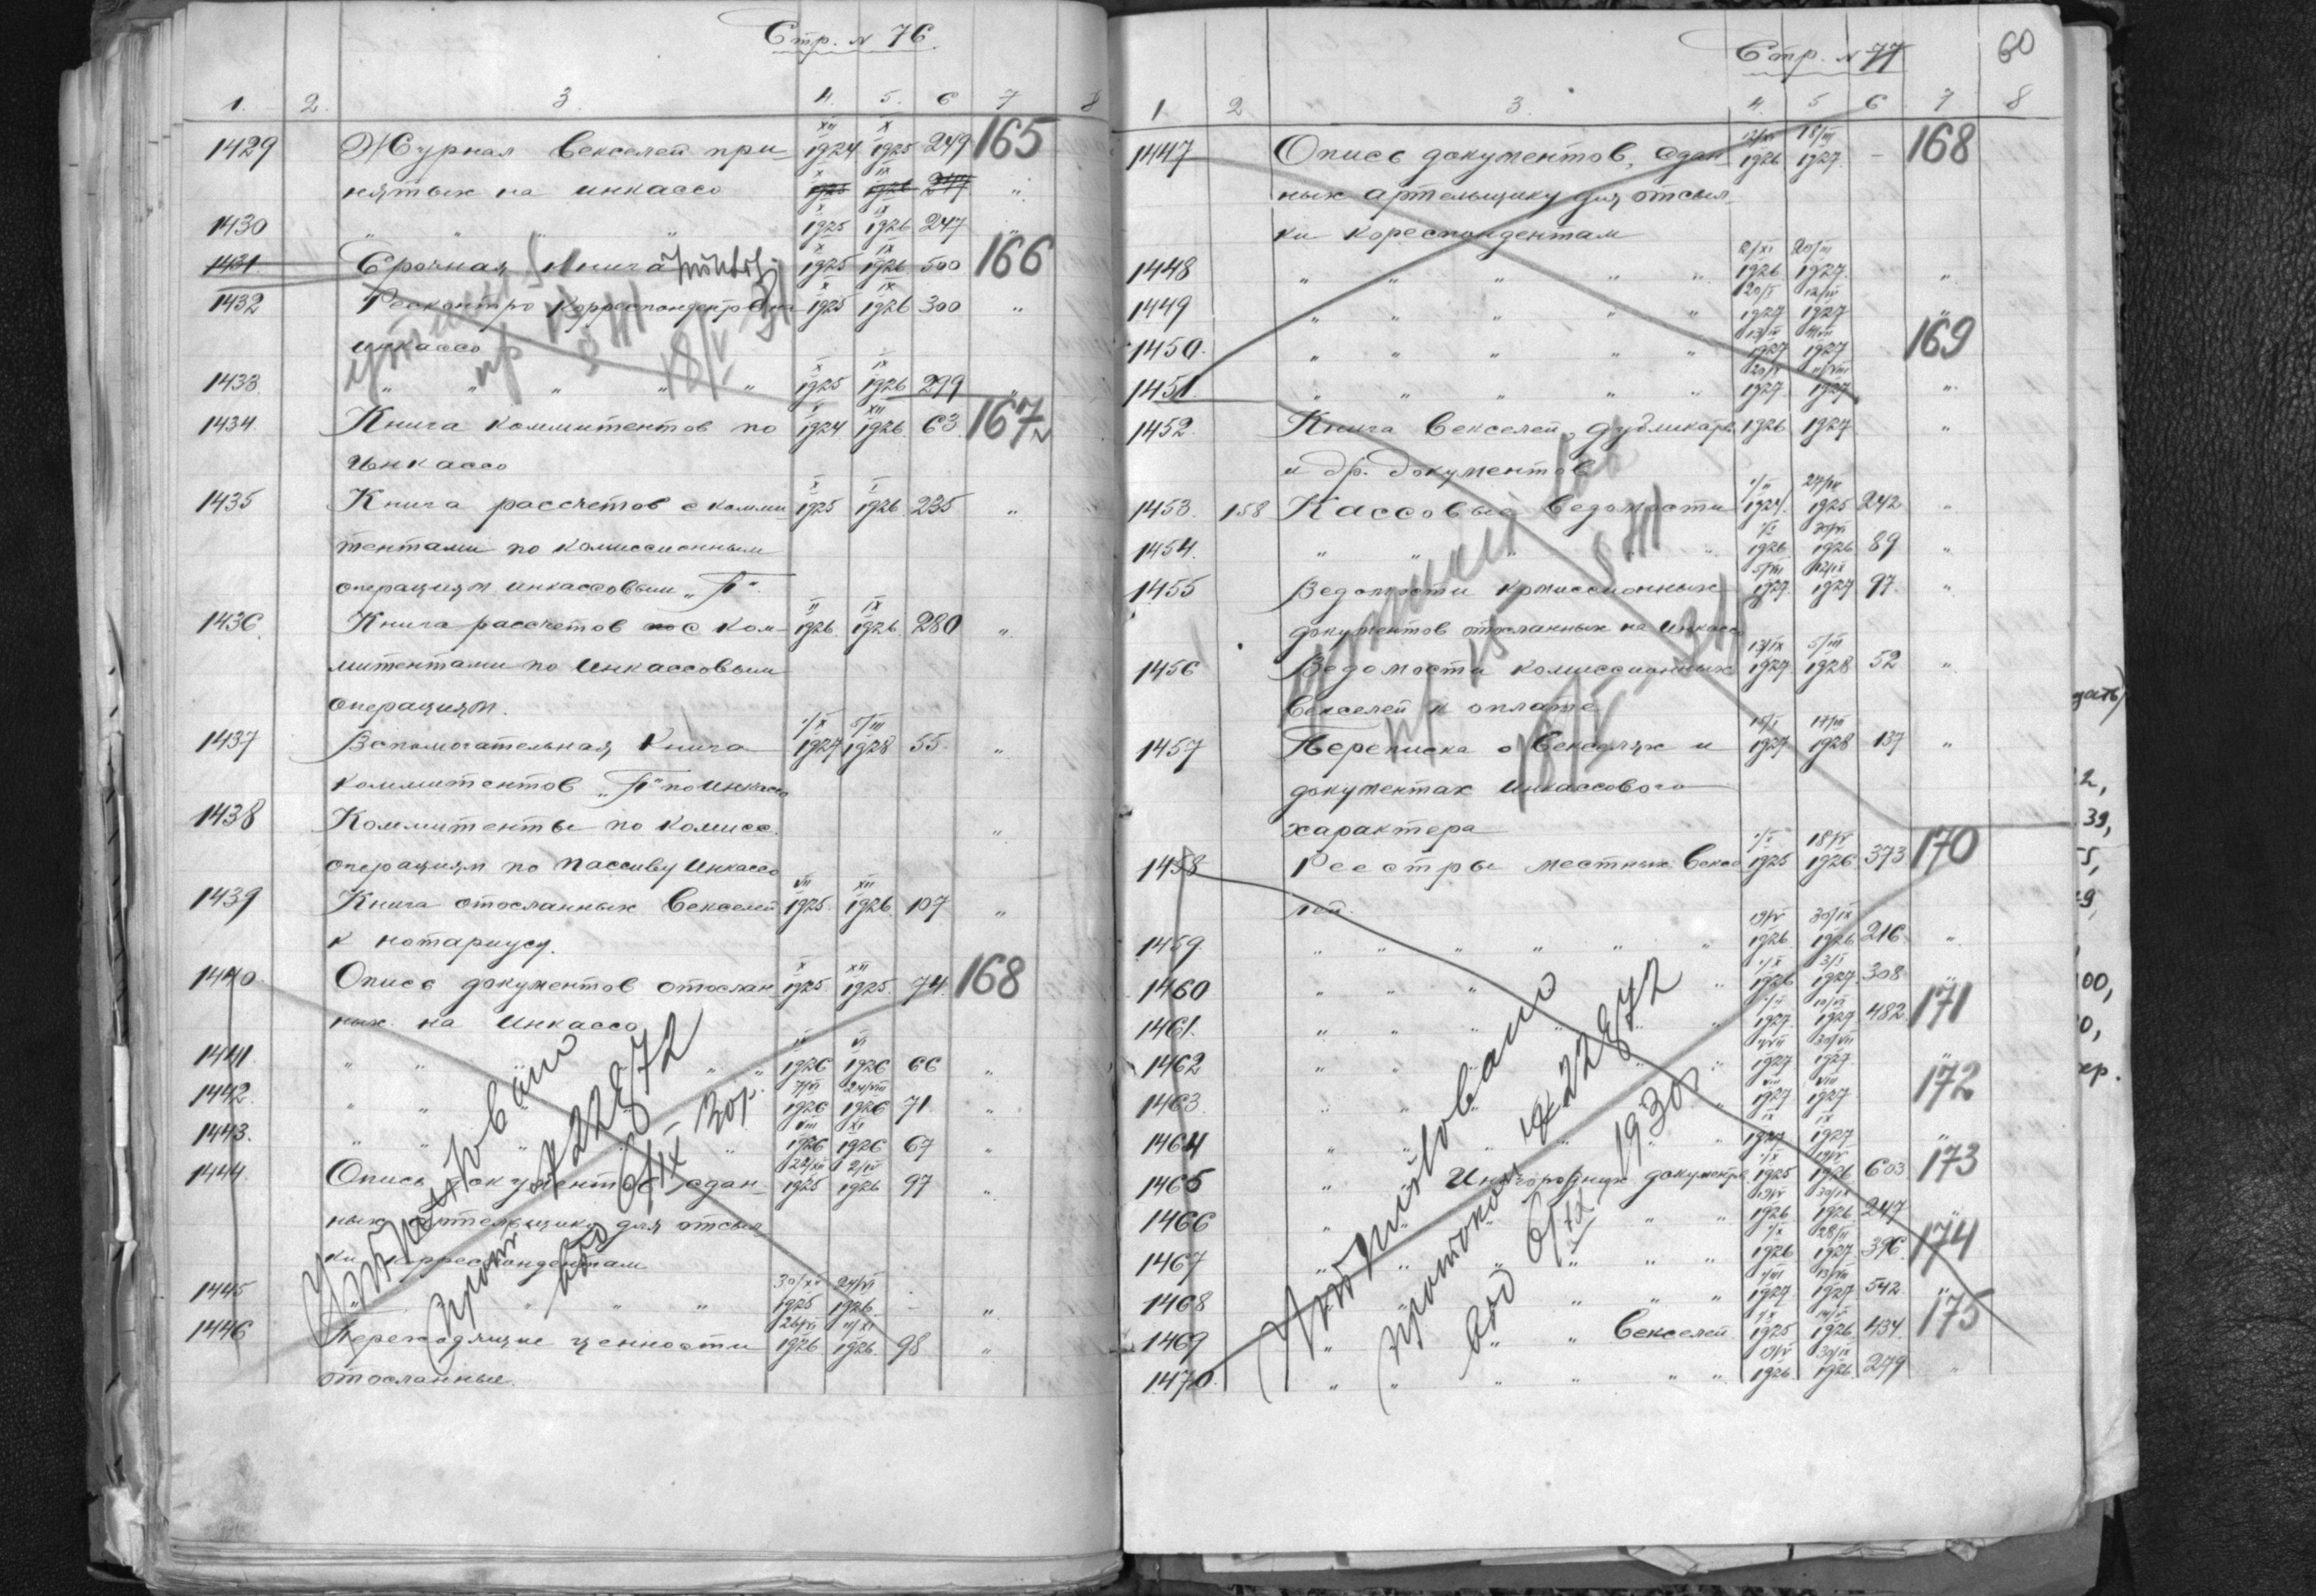 Стр. № 76.
1. 2. 3. 4. 5. 6 7 8
1429 Журнал векселей при- XII 1924 X 1925 249 165
нятых на инкассо X 1925 IX 1926 247 "
1430 " " " " X 1925 IX 1926 247 "
1431 Срочная книга X 1925 IX 1926 500 166
1432 Рескантро корреспондентов на X 1925 IX 1926 300 "
инкассо
1433. " " " " " X 1925 IX 1926 299 "
1434. Книга коммитентов по X 1924 XII 1926 63 167
Инкассо
1435 Книга рассчетов с комми- X 1925 I 1926 235 "
тентами по комиссионным
операциям инкассовым „П".
1436. Книга рассчетов с ком- II 1926 IX 1926 280 "
митентами по Инкассовым
операциям.
1437 Вспомогательная Книга 1/X 1927 5/III 1928 55. "
коммитентов „П" по инкассо
1438 Коммитенты по комисс. "
операциям по пассиву Инкассо
1439 Книга отосланных векселей VII 1925 XII 1926 107 "
к нотариусу.
1440 Опись документов отослан X 1925 XII 1925 74. 168
ных на Инкассо
1441. " " " " " IV 1926 VI 1926 66 "
1442. " " 7/VI 1926 24/VIII 1926 71 "
1443. " " VIII 1926 XI 1926 67 "
1444. Опись документов сдан- 22/XII 1925 2/IV 1926 97 "
ных артельщику для отсыл
ки корреспондентам
1445 " " " " 30/XII 1925 24/VI 1926 - "
1446 Переходящие ценности 26/VI 1926 11/XI 1926 98 "
отосланные.
утилиз
пр 15
18/V 31
Утилизовано
прот № 22872
от 6/IX 30г.
Стр. № 77
60
1 2 3. 4. 5 6 7 8
1447 Опись документов, сдан 12/XI 1926 18/III 1927 - 168
ных артельщику для отсыл
ки кореспондентам
1448 " " " " " 2/XI 1926 20/III 1927 "
1449 " " " " " 20/I 1927 12/III 1927 "
1450. " " " " " 13/III 1927 1927 169
1451. " " " " " 1927 1927 "
1452. Книга векселей, дубликатов 1926 1927 "
и др. документов
1453. 158 Кассовые ведомости 1/II 1924 27/IX 1925 242 "
1454. " " " " 1/I 1926 30/VI 1926 89 "
1455 Ведомости комиссионных 5/VIII 1927 12/IX 1927 97. "
документов отосланных на инкассо
1456 Ведомости комиссионных 13/IX 1927 5/III 1928 52 "
векселей к оплате
1457 Переписка о векселях и 15/I 1927 17/III 1928 137 "
документах инкассового
характера
1458 Реестры местных вексе 1/I 1925 18/IV 1926 373 170
лей.
1459. " " " " " " 19/IV 1926 30/IX 1926 216. "
1460 " " " " 1/X 1926 3/I 1927. 308 "
1461. " " " " 1927 1927 482 171
1462 " " " " 1927 30/VII 1927 "
1463. " " " VIII 1927 VIII 1927 172
1464 " " " " IX 1927 IX 1927 "
1465 " " Иногородних документов 1/X 1925 19/IV 1926 603 173
1466 " " " 19/IV 1926 30/IX 1926 247 "
1467 " " " " 1/X 1926 28/II 1927 396. 174
1468 " " " " 1/III 1927 13/VIII 1927 542. "
1469 " " " Векселей 1/X 1925 14/VI 1926 434 175
1470. " " " " " " 1926 30/IX 1926 279 "
пр 15
18/V 31
Утилизовано
протокол № 22872
от 6/IX 1930г
2,
39,
9,
00,
0,
ер.